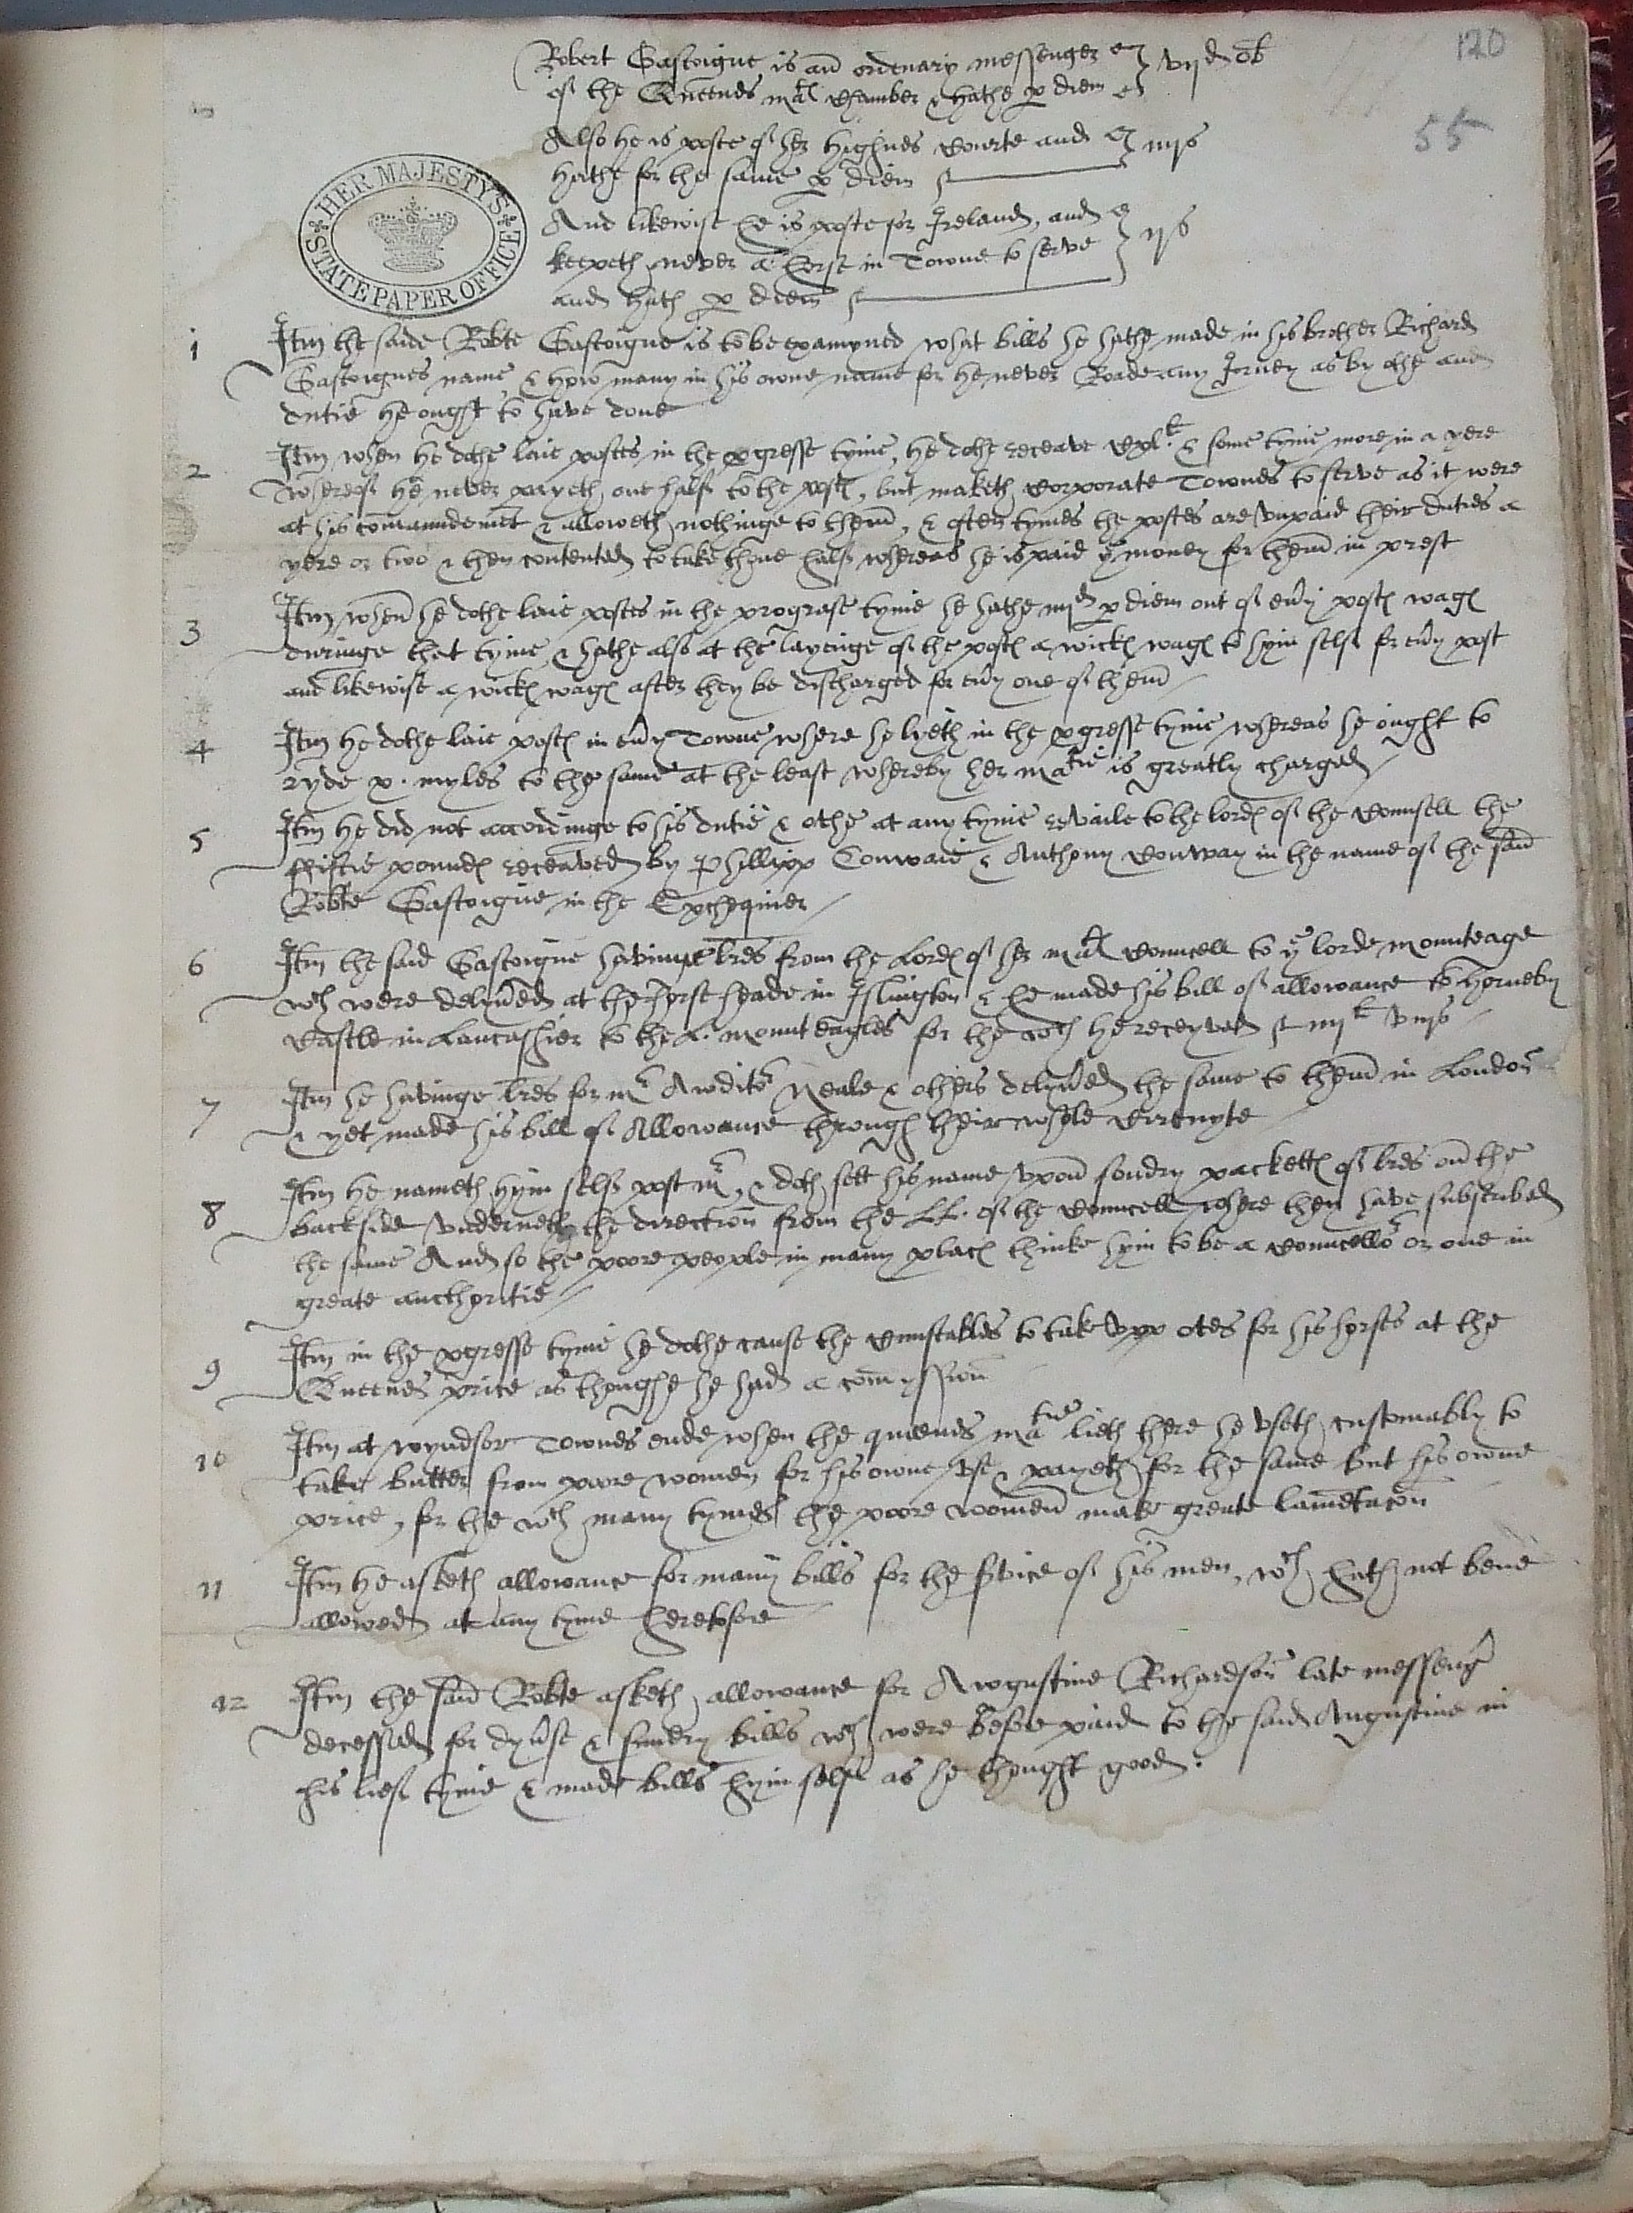 120
55
Robert Gascoigne is an ordenary messenger } vijd ob
of the Queenes mats chamber & hathe p diem
Also he is poste of her highnes Courte and } iiijs
hathe for the same p diem
And likewise he is poste for Ireland, and } ijs
keepeth never a horse in Towne to serve
and hath p diem
HER MAJESTY'S STATE PAPER OFFICE
1 Itm the saide Robte Gascoigne is to be examyned what bills he hathe made in his brother Richard
Gascoignes name, & how many in his owne name for he never Roade any Jorney as by othe and
dutie he ought to have done
2 Itm when he dothe laie postes in the pgresse tyme, he dothe receave & some tyme more in a yere
whereof he never payeth one half to the postes, but maketh Corporate Townes to serve as it were
at his comaundemet & alloweth nothinge to them, & often tymes the postes are unpaid their duties a
yere or two & then contented to take thone half whereas he is paid ye money for them in prest
3 Itm when he dothe laie postes in the prograsse tyme he hathe iiijd p diem out of evy postes wages
duringe that tyme, & hathe also at the layenge of the postes a wickes wages to hym self for evy post
and likewise a wickes wages after they be discharged for evy one of them
4 Itm he dothe laie postes in evy Towne where he lyeth in the pgresse tyme whereas he ought to
ryde x. myles to the same at the least whereby her matie is greatly charged
5 Itm he did not accordinge to his dutie & othe at any tyme revaile to the lordes of the Counsell the
ffiftie poundes receaved by Phillipp Conwaie & Anthony Conway in the name of the said
Robte Gascoigne in the Exchequier
6 Itm the said Gascoigne havinge lres from the Lordes of her mats Councell to ye lorde Mounteage
wch were delyved at the horse heade in Islington & he made his bill of allowance to Horneby
Castle in Lancashier to the L. Mount Eagles for the wch he receyved
7 Itm he havinge lres for mr Awditor Neale & others delyved the same to them in London
& yet made his bill of Allowance through their whole Circuyte
8 Itm he nameth hym self post mr, & doth sett his name upon sondry packetts of lres on the
backside underneth the direction from the LL. of the Councell where they have subscribed
the same And so the poore people in many places thinke hym to be a Councellor or one in
greate aucthoritie
9 Itm in the pgresse tyme he dothe cause the Cunstables to take upp otes for his horses at the
Queenes price as thoughe he had a comyssion
10 Itm at Wyndsor Townes ende when the quenes matie lieth there he useth customably to
take butter from poore women for his owne use & payeth for the same but his owne
price, for the wch many tymes the poore women make greate lametacon
11 Itm he asketh allowance for many bills for the svice of his men, wch hath not bene
allowed at any tyme heretofore
12 Itm the said Robte asketh allowance for Awgustine Richardson late messengr
decessed for dyvse & sundry bills wch were before paid to the said Augustine in
his lief tyme & made bills hym self as he thought good: